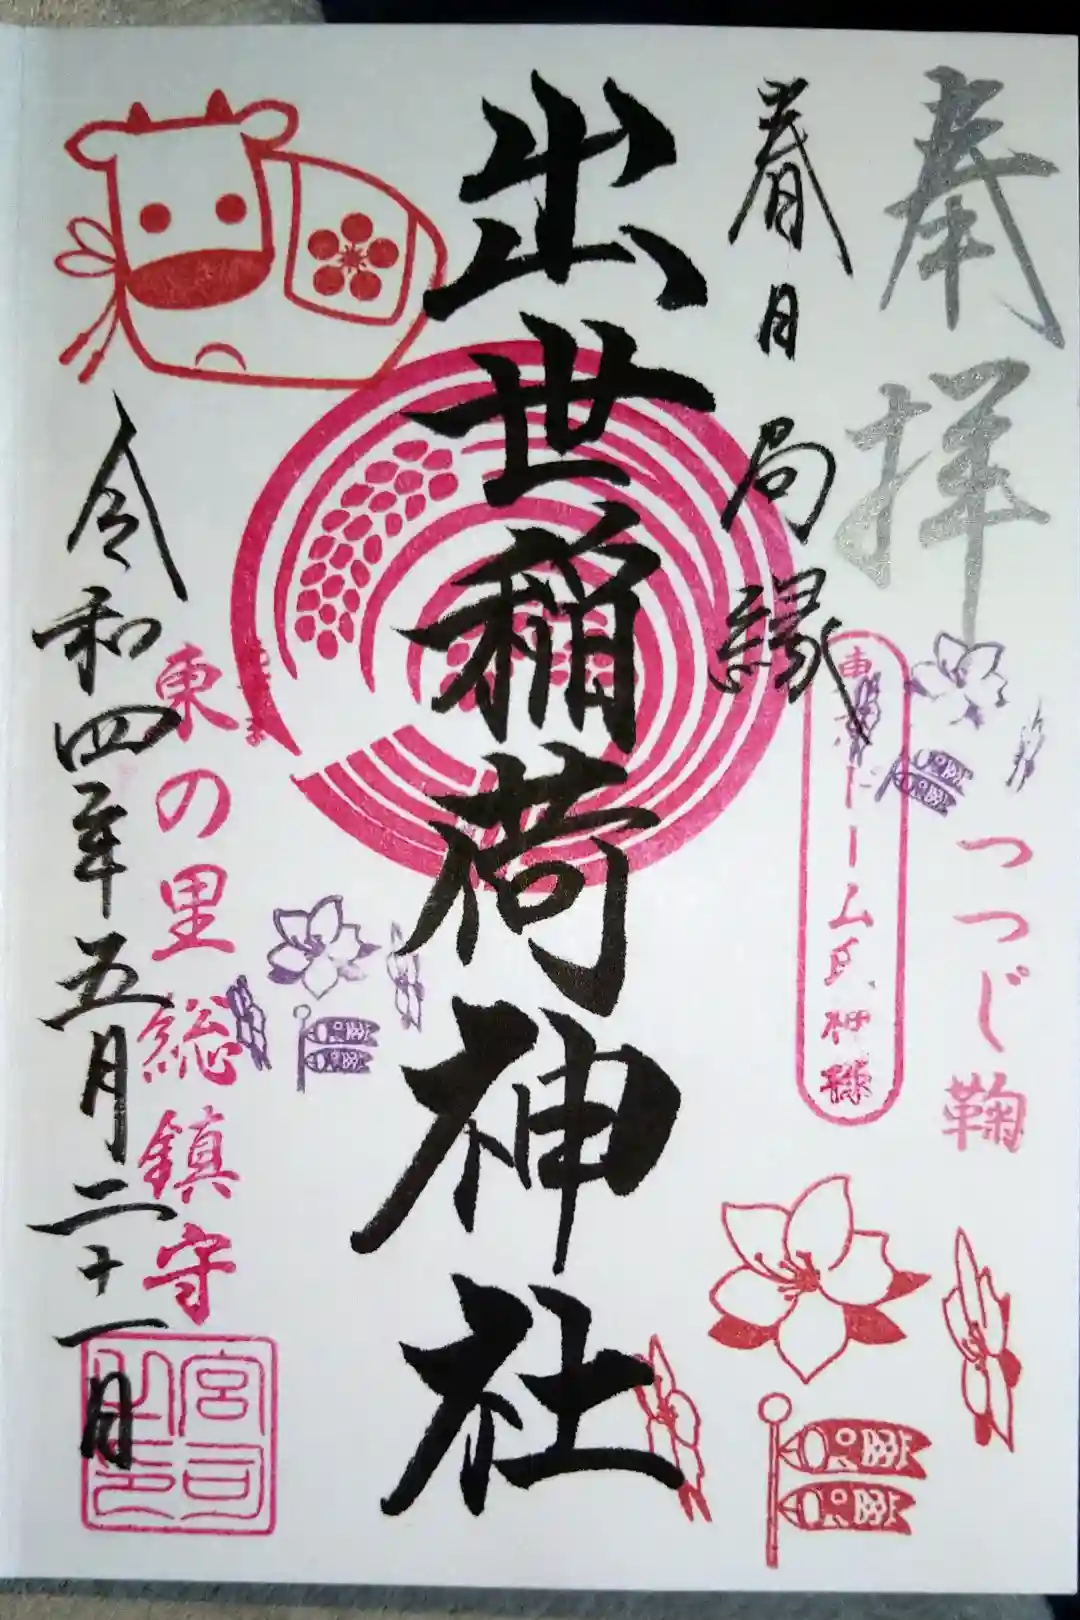 奉拝
つつじ鞠
春日局縁
東京ドーム氏神様
出世稲荷神社
東の里総鎮守
令和四年五月二十一日
宮司之印